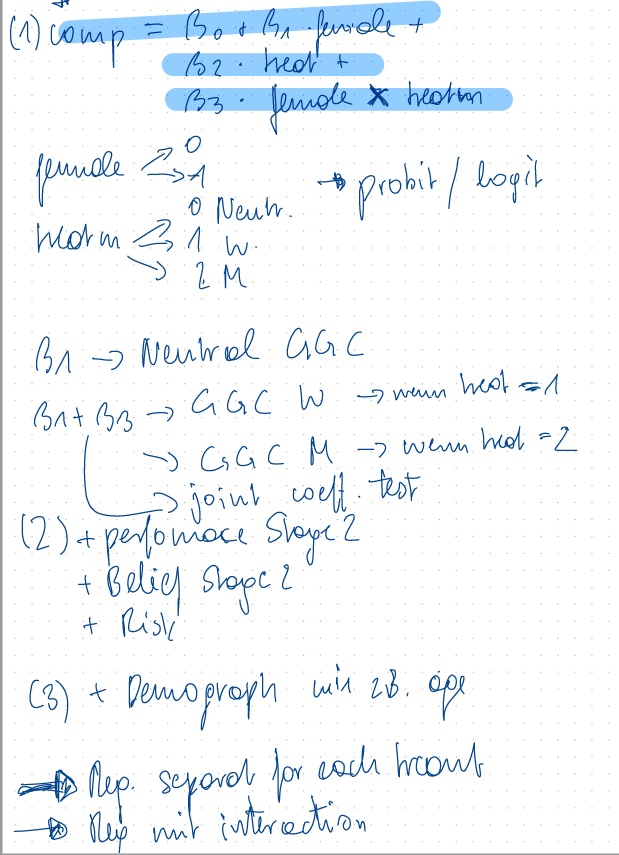 (1) comp = β0 + β1 · female +
β2 · treat +
β3 · female × treatm
female → 0
→ 1
→ probit / logit
treatm → 0 Neutr.
→ 1 W.
→ 2 M
β1 → Neutral GGC
β1 + β3 → GGC W → wenn treat = 1
→ GGC M → wenn treat = 2
→ joint coeff. test
(2) + perfomace Stage 2
+ Belief Stage 2
+ Risk
(3) + Demograph wie zB. age
→ Reg. separat for each treatm
→ Reg mit interaction